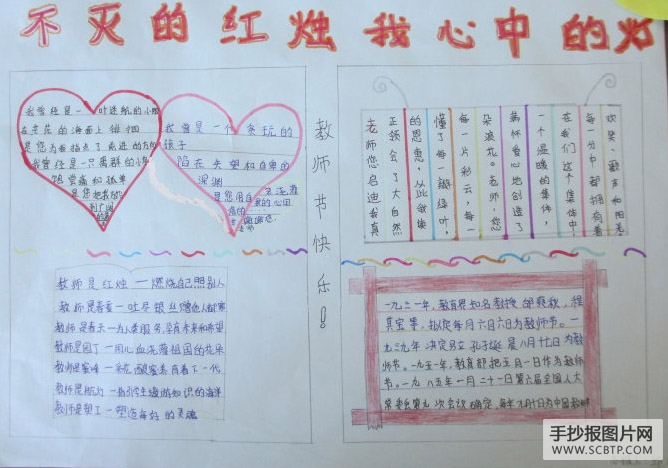 不灭的红烛 我心中的灯
我曾经是一叶迷航的小船
在茫茫的海面上徘徊
是您为我指点了前进的方向
我曾经是一只离群的小鸟
饱尝痛和孤单
是您把我的
我曾是一个贪玩的
孩子
陷在失望和自卑的
深渊
是您用
教师节快乐!
欢笑、歌声和阳光
每一分中都拥有着
在我们这个集体中,
一个温暖的集体,
满怀爱心地创造了
朵浪花。老师,您
每一片彩云,每一
懂了每一瓣绿叶,
的恩惠,从此我读
正领会了大自然
老师您启迪我真
教师是红烛一燃烧自己照别人
教师是春蚕一吐尽银丝
教师是春天一为人类服务,孕育未来和希望
教师是园丁一用心血浇灌祖国的花朵
教师是蜜蜂一采花酿蜜育着下一代
教师是航灯一指引学生遨游知识的海洋
教师是塑工一塑造每好的灵魂
一九三一年,教育界知名教授邰爽秋,程
其宝等,拟定每月六月六日为教师节。一
九三九年决定另立孔子诞辰八月廿七日为教
师节。一九五一年,教育部把五月一日作为教师
节。一九八五年一月二十一日第六届全国人大
常委会第九次会议确定,每年九月十日为中国教师
手抄报图片网
WWW.SCBTP.COM